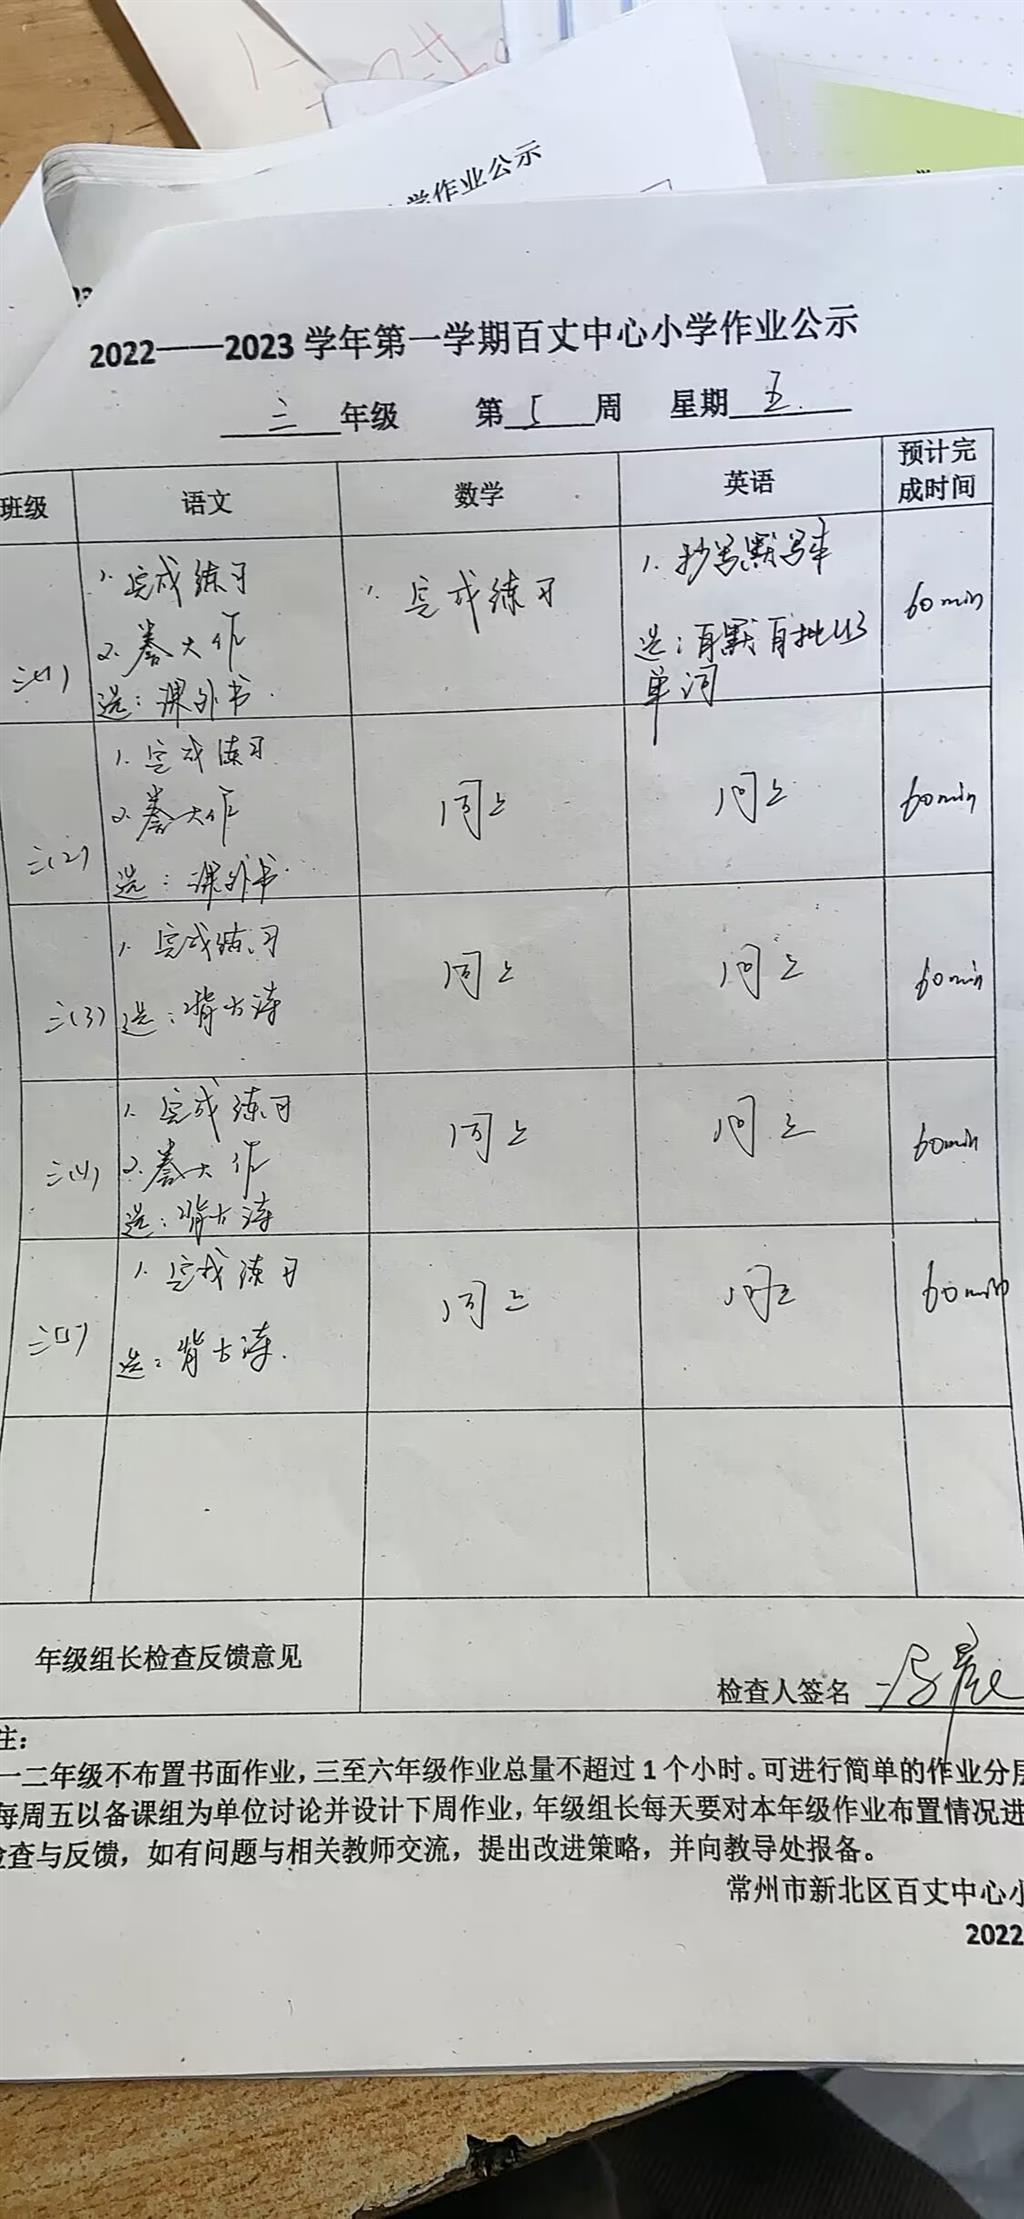 学作业公示
2022——2023 学年第一学期百丈中心小学作业公示
三 年级 第 5 周 星期 五
班级 语文 数学 英语 预计完成时间
三(1)
1. 完成练习
2. 誊大作
选：课外书
1. 完成练习
1. 抄写默写本
选：自默自批U3
单词
60min
三(2)
1. 完成练习
2. 誊大作
选：课外书
同上
同上
60min
三(3)
1. 完成练习
选：背古诗
同上
同上
60min
三(4)
1. 完成练习
2. 誊大作
选：背古诗
同上
同上
60min
三(5)
1. 完成练习
选：背古诗
同上
同上
60min
年级组长检查反馈意见
检查人签名
注：
一二年级不布置书面作业，三至六年级作业总量不超过 1 个小时。可进行简单的作业分层
每周五以备课组为单位讨论并设计下周作业，年级组长每天要对本年级作业布置情况进
检查与反馈，如有问题与相关教师交流，提出改进策略，并向教导处报备。
常州市新北区百丈中心小
2022